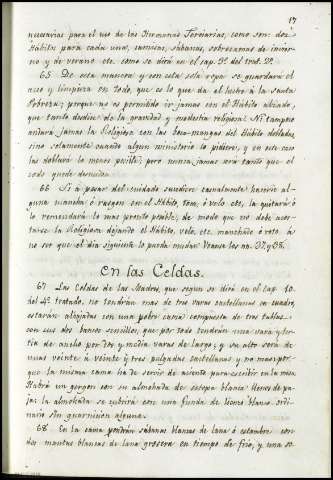 17
necesarias para el uso de las Hermanas Terciarias, como son: dos
Hábitos para cada una, camisas, sábanas, sobrecamas de invier-
no y de verano etc. como se dirá en el cap. 9º. del trat. 2º.
65 De esta manera y con esta sola ropa se guardará el
aseo y limpieza en todo, que es lo que da el lustre a la santa
Pobreza; porque no es permitido ir jamas con el Hábito
que tanto desdice de la gravedad y modestia religiosa. Ni tampoco
jamas la Religiosa con las boca-mangas del Hábito dobladas,
sino solamente cuando algun ministerio lo pidiere, y en este caso
las doblará lo menos posible; pero nunca jamas será tanto que el
codo quede desnudo.
66 Si á pesar del cuidado sucediere casualmente hacerse al-
guna mancha ó rasgon en el Hábito, toca, ó velo etc, la quitará ó
lo remendará lo mas pronto posible; de modo que no debe acos-
tarse la Religiosa dejando el Hábito, velo, etc. manchado ó roto, á
no ser que el dia siguiente lo pueda mudar. Veanse los nn. 37 y 38.
En las Celdas.
67 Las Celdas de las Madres, que segun se dirá en el cap. 10.
del 4º. tratado, no tendrán mas de tres varas castellanas en cuadro,
estarán alajadas con una pobre cama compuesta de tres tablas
con sus dos bancos sencillos, que por todo tendrán una vara y ter-
cia de ancho por dos y media varas de largo; y su alto será de
unas veinte a veinte y tres pulgadas castellanas y no mas; por
que la misma cama ha de servir de asiento para escribir en la mesa.
Habrá un gergon con su almohada de estopa blanca llenos de pa-
ja: la almohada se cubrirá con una funda de lienzo blanco ordi-
nario sin guarnicion alguna.
68 En la cama pondrán sábanas blancas de lana ó estambre con
dos mantas blancas de lana grosera en tiempo de frio, y una so-